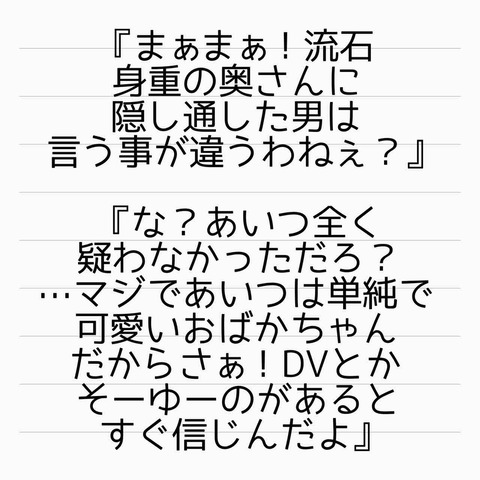 『まぁまぁ！流石
身重の奥さんに
隠し通した男は
言う事が違うわねぇ？』
『な？あいつ全く
疑わなかっただろ？
…マジであいつは単純で
可愛いおばかちゃん
だからさぁ！DVとか
そーゆーのがあると
すぐ信じんだよ』